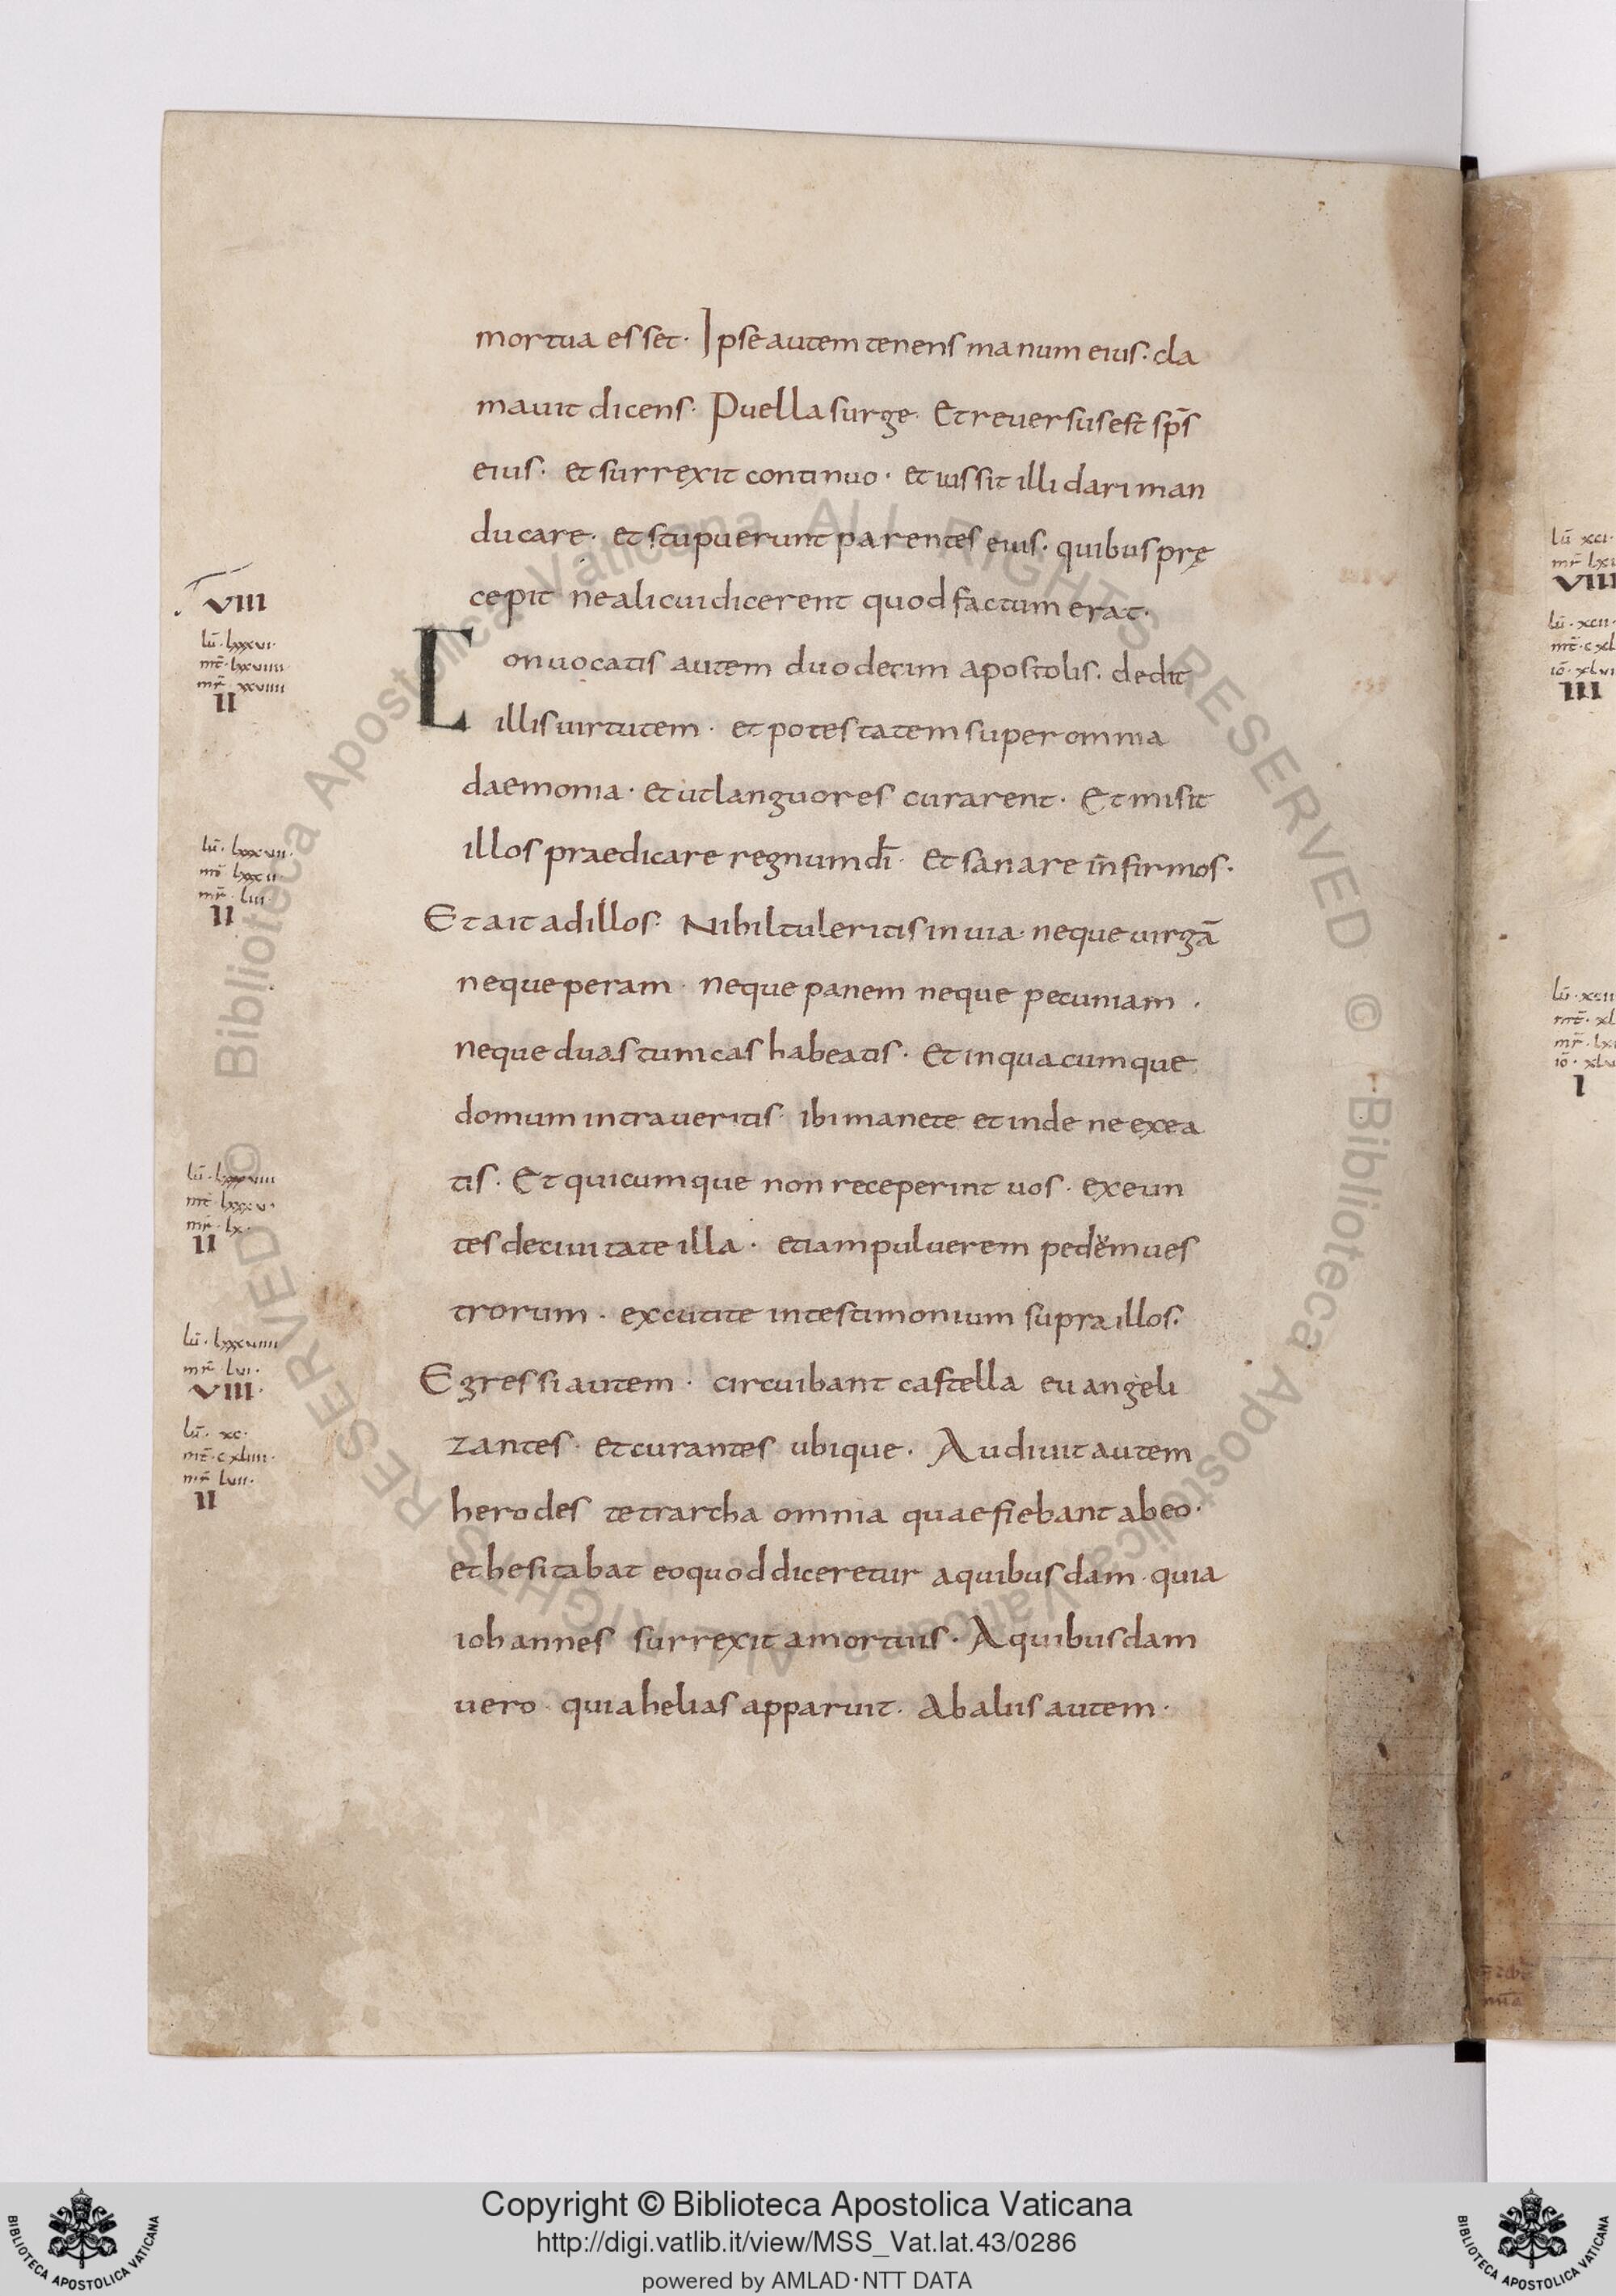 mortua esset· Ipse autem tenens manum eius· cla
mauit dicens· Puella surge· Et reuersus est sp̄s
eius· et surrexit continuo· et iussit illi dari man
ducare· et stupuerunt parentes eius· quibus prę
cepit ne alicui dicerent quod factum erat·
VIII
lū· lxxxvi·
mt̄· lxxviiii·
mr̄· xxviiii
II
Conuocatis autem duodecim apostolis· dedit
illis uirtutem· et potestatem super omnia
daemonia· et ut languores curarent· Et misit
illos praedicare regnum dī· et sanare īnfirmos·
lū· lxxxvii·
mr̄· liii·
II
Et ait ad illos· Nihil tuleritis in uia· neque uirgā
neque peram· neque panem neque pecuniam·
neque duas tunicas habeatis· Et in quacumque
domum intraueritis· ibi manete et inde ne exea
tis· Et quicumque non receperint uos· exeun
tes de ciuitate illa· etiam puluerem pedem ues
trorum· excutite in testimonium supra illos·
lū· lxxxviii
mt̄· lxxxv·
mr̄· lv·
II
Egressi autem· circuibant castella euangeli
zantes· et curantes ubique· Audiuit autem
herodes tetrarcha omnia quae fiebant ab eo·
et hesitabat eo quod diceretur a quibusdam· quia
iohannes surrexit a mortuis· A quibusdam
uero· quia helias apparuit· Ab aliis autem·
lū· lxxxviiii
mr̄· lvi·
VIII·
lū· xc·
mt̄· cxliii·
mr̄· lvii·
II
lū· xci·
VIII
lū· xcii·
III
I
© Biblioteca Apostolica Vaticana ALL RIGHTS RESERVED © Biblioteca Apostolica Vaticana ALL RIGHTS RESERVED
Copyright © Biblioteca Apostolica Vaticana
http://digi.vatlib.it/view/MSS_Vat.lat.43/0286
powered by AMLAD·NTT DATA
BIBLIOTECA APOSTOLICA VATICANA
BIBLIOTECA APOSTOLICA VATICANA